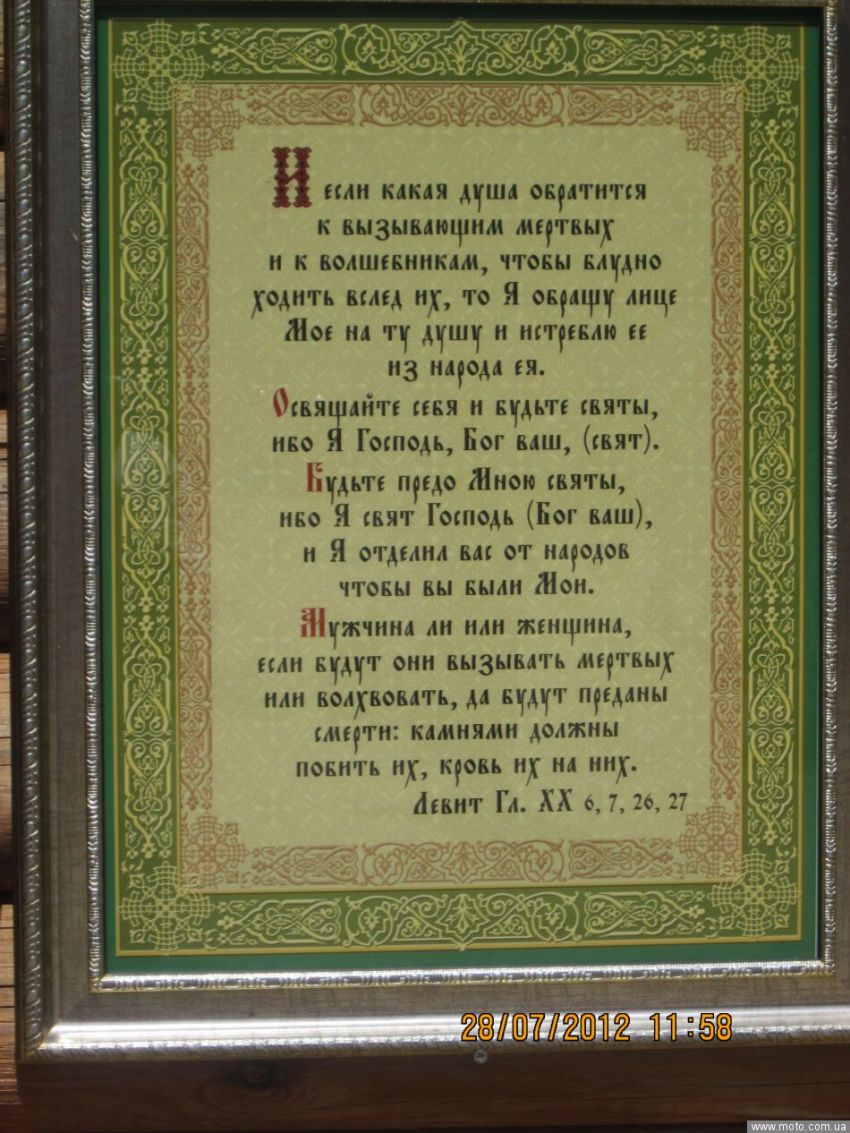 И если какая душа обратится
к вызывающим мертвых
и к волшебникам, чтобы блудно
ходить вслед их, то Я обращу лице
Мое на ту душу и истреблю ее
из народа ея.
Освящайте себя и будьте святы,
ибо Я Господь, Бог ваш, (свят).
Будьте предо Мною святы,
ибо Я свят Господь (Бог ваш),
и Я отделил вас от народов
чтобы вы были Мои.
Мужчина ли или женщина,
если будут они вызывать мертвых
или волхвовать, да будут преданы
смерти: камнями должны
побить их, кровь их на них.
Левит Гл. XX 6, 7, 26, 27
28/07/2012 11:58
www.moto.com.ua